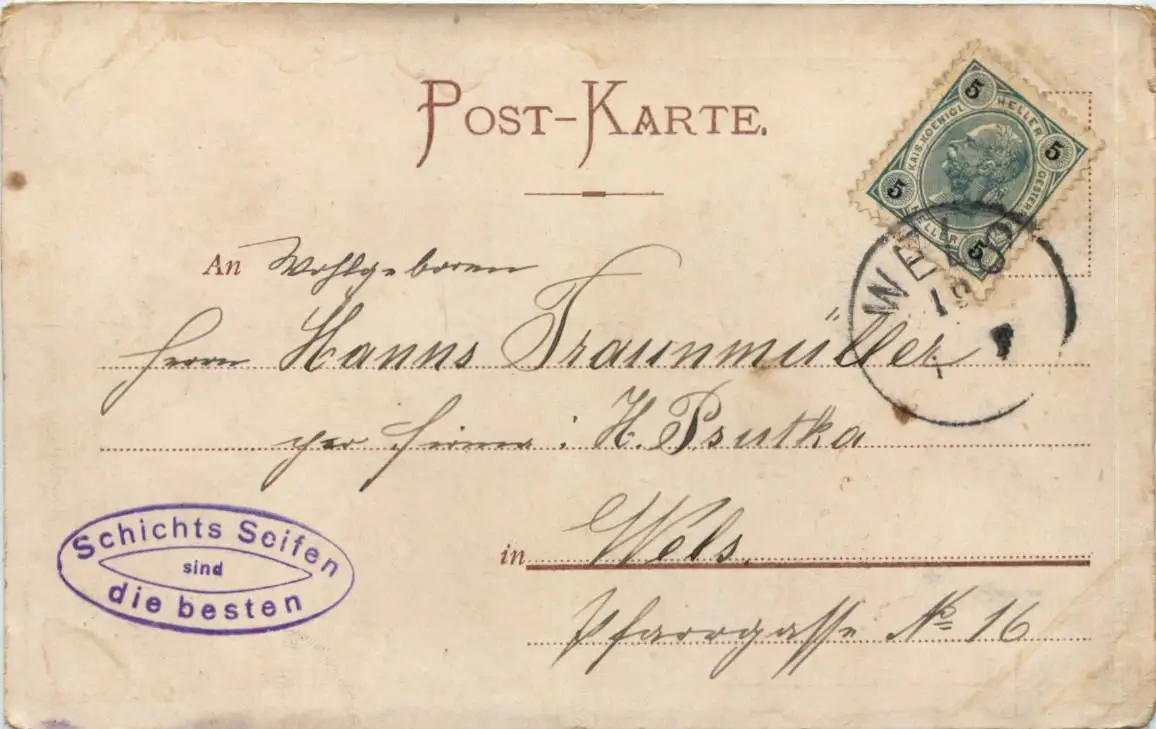 POST-KARTE.
5 HELLER 5
KAIS. KOENIGL. OESTERR.
5 HELLER 5
WELS
An Wohlgeboren
Herrn Hanns Traunmüller
per Firma: H. Psutka
in Wels.
Pfarrgasse No 16
Schichts Seifen
sind
die besten